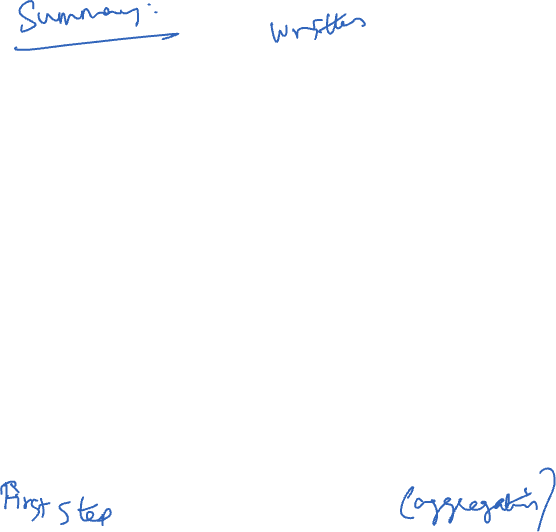 Summary: written
First step (aggregation)